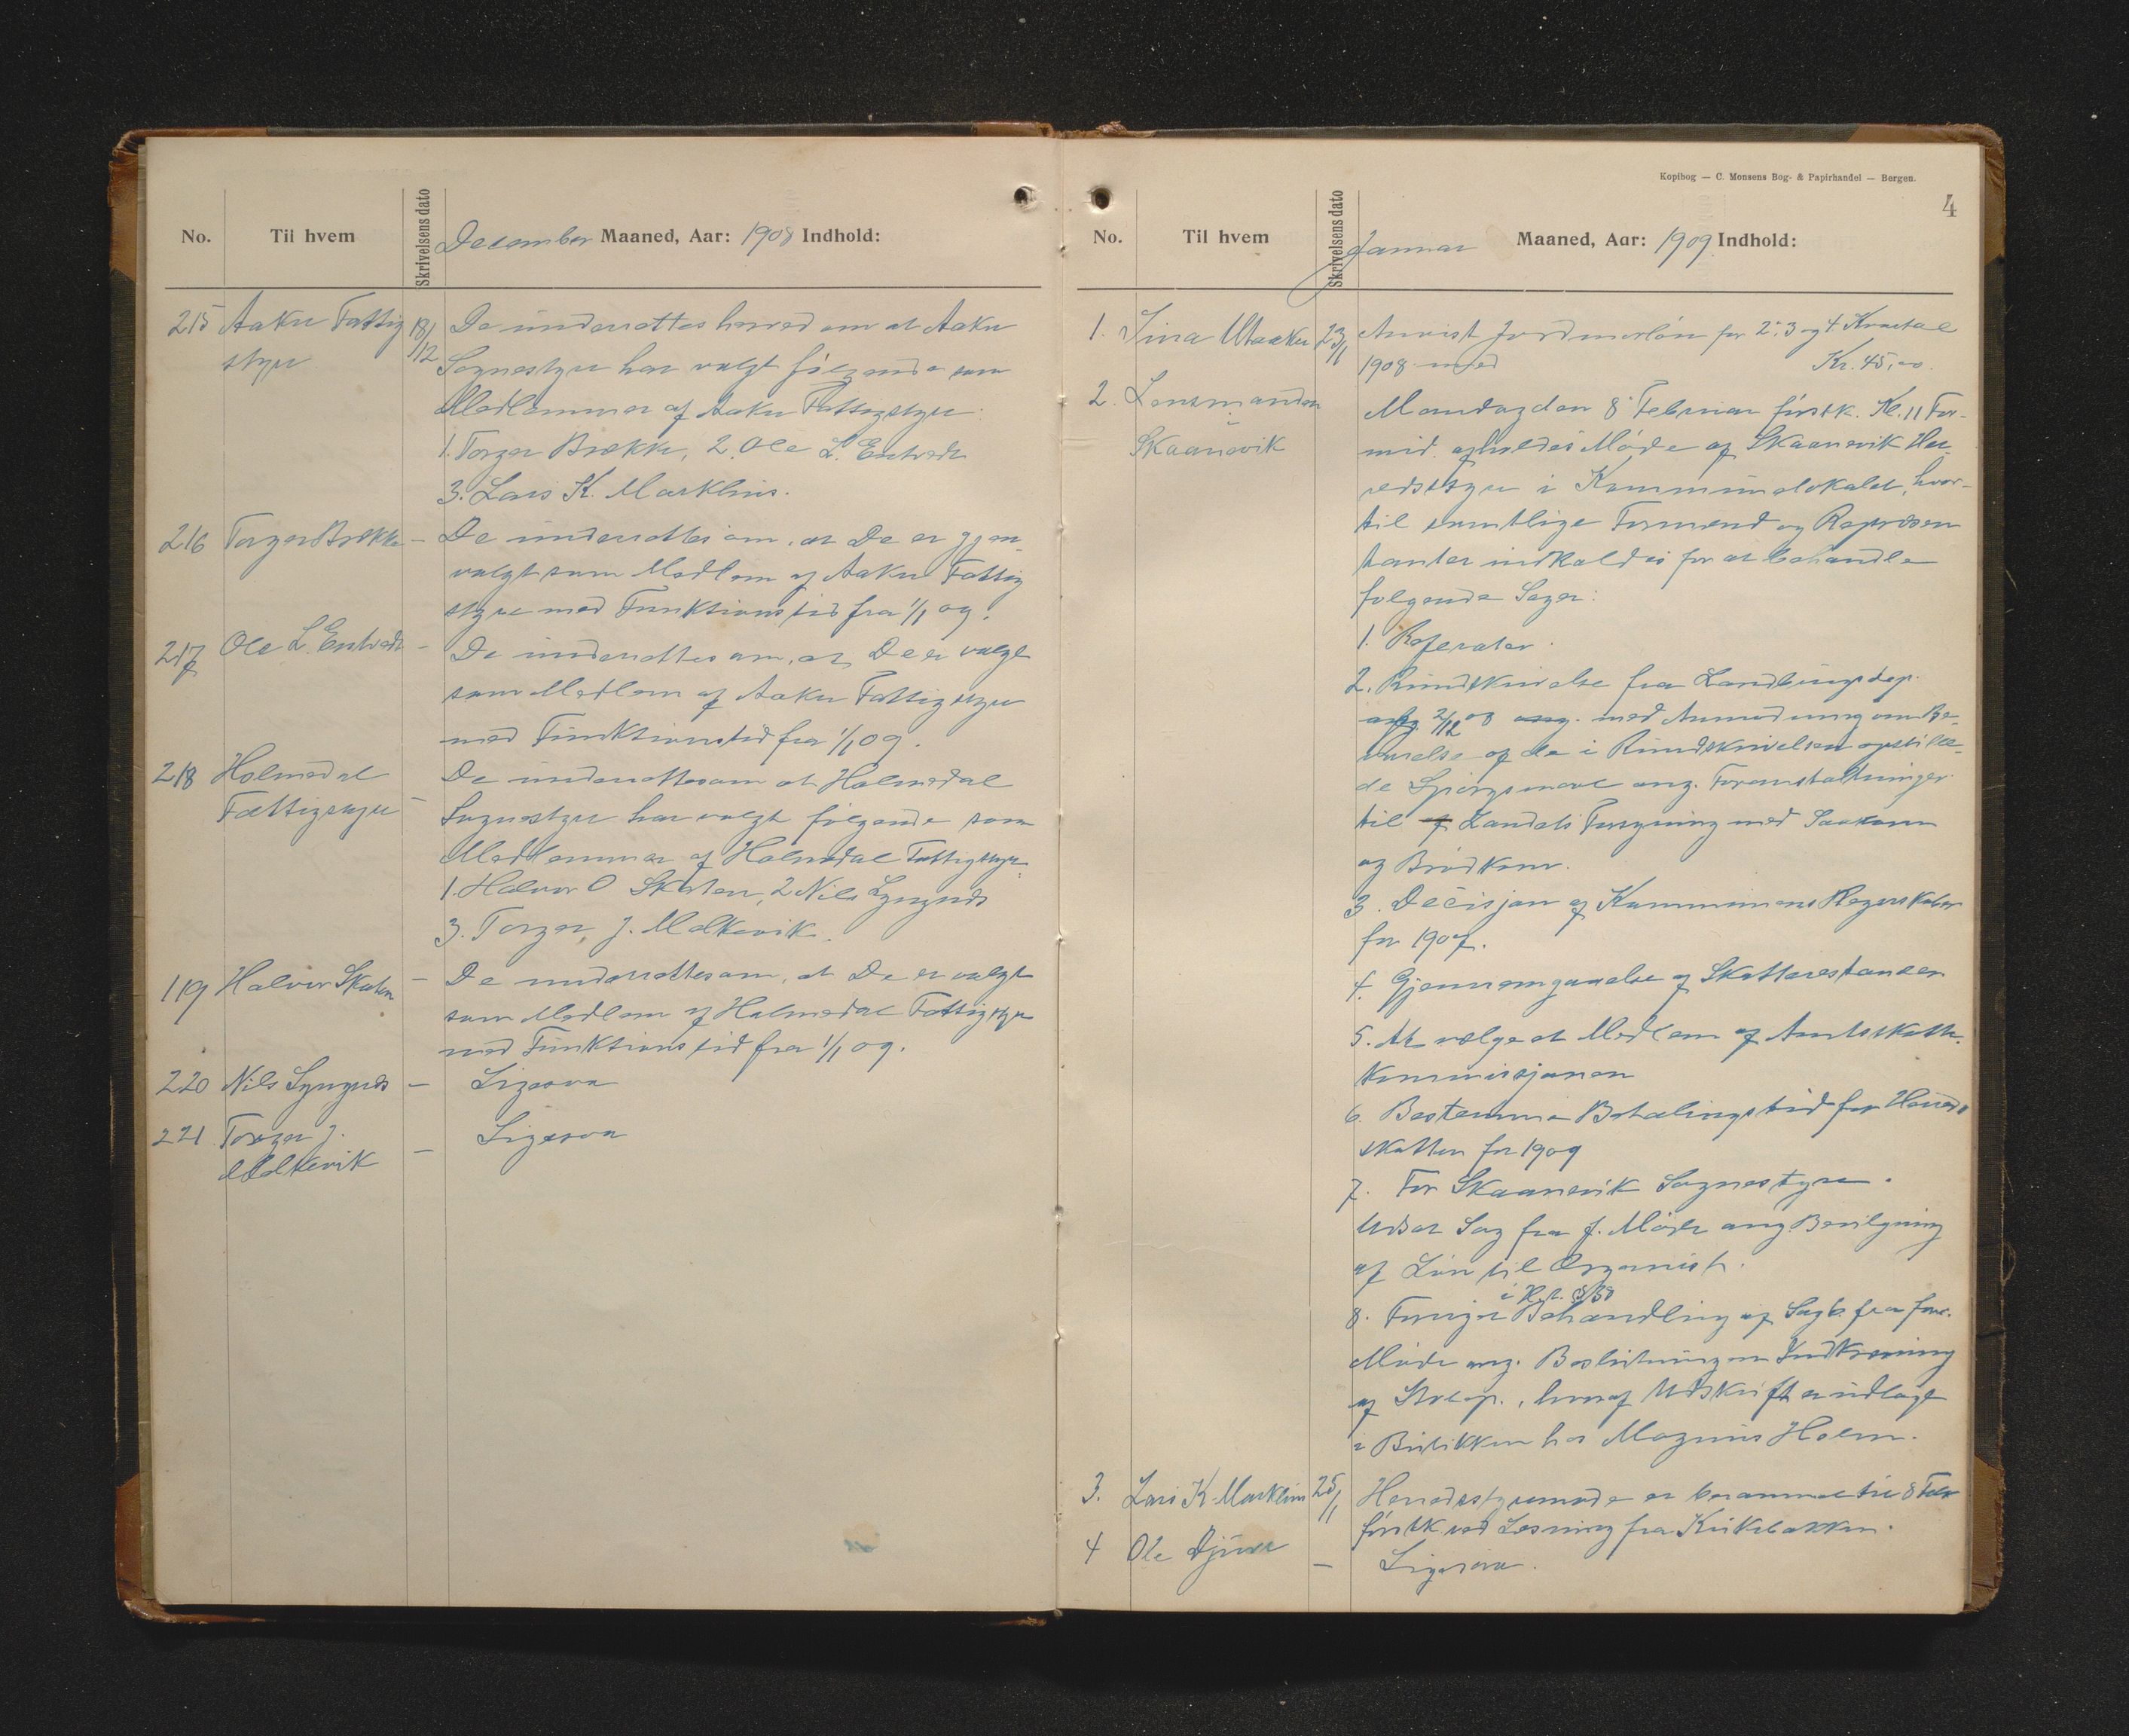 No. Til hvem Skrivelsens dato December Maaned, Aar: 1908 Indhold:
215 Aakre Fattig 18/12 De underrettes herved om at Aakre
styre Sognestyre har valgt følgende som
Medlemmer af Aakre Fattigstyre:
1. Torger Brekke, 2. Ole L. Entvedt
3. Lars K. Marklins.
216 Torger Brekke – De underrettes om, at De er gjen-
valgt som Medlem af Aakre Fattig
styre med Funktionstid fra 1/1 09.
217 Ole L. Entvedt – De underrettes om, at De er valgt
som Medlem af Aakre Fattigstyre
med Funktionstid fra 1/1 09.
218 Holmedal De underrettes om at Holmedal
Fattigstyre – Sognestyre har valgt følgende som
Medlemmer af Holmedal Fattigstyre:
1. Halvor O Skaten, 2 Nils Lyngnes
3. Torger J. Molkevik.
119 Halvor Skaten – De underrettes om, at De er valgt
som Medlem af Holmedal Fattigstyre
med Funktionstid fra 1/1 09.
220 Nils Lyngnes – Ligesaa
221 Torger J. – Ligesaa
Molkevik
Kopibog — C. Monsens Bog- & Papirhandel — Bergen.
4
No. Til hvem Skrivelsens dato Januar Maaned, Aar: 1909 Indhold:
1. Sina Utaaker 23/1 Anvist Jordmorløn for 2. 3 og 4 Kvartal
1908 med Kr. 45,00.
2. Lensmanden Mandag den 8 Februar førstk. Kl. 11 For-
Skaanevik mid. afholdes Møde af Skaanevik Her-
redsstyre i Kommunelokalet, hvor-
til samtlige Formænd og Repræsen
tanter indkaldes for at behandle
følgende Sager:
1. Referater.
2. Rundskrivelse fra Landbrugsdep.
2/12 08 ang. med Anmodning om Be-
svarelse af de i Rundskrivelsen opstille-
de Spørgsmaal ang. Foranstaltninger
til Landets Forsyning med Saakorn
og Brødkorn.
3. Decisjon af Kommunens Regnskaber
for 1907.
4. Gjennemgaaelse af Skatterestancer
5. At vælge et Medlem af Amtsskatte-
kommissjonen
6. Bestemme Betalingstid for Herreds
skatten for 1909
7. For Skaanevik Sognestyre.
Udsat Sag fra f. Møde ang. Bevilgning
af Løn til Organist.
i H. t. § 38
8. Fornyet Behandling af Sag 6. fra forr.
Møde ang. Beslutning om Indkræving
af, hvoraf Udskrift er udlagt
i Butikken hos Magnus Holm.
3. Lars K. Marklins 25/1 Herredsstyremøde er berammet til 8 Febr
førstk ved Læsning fra Kirkebakken.
4 Ole Djuve – Ligesaa.